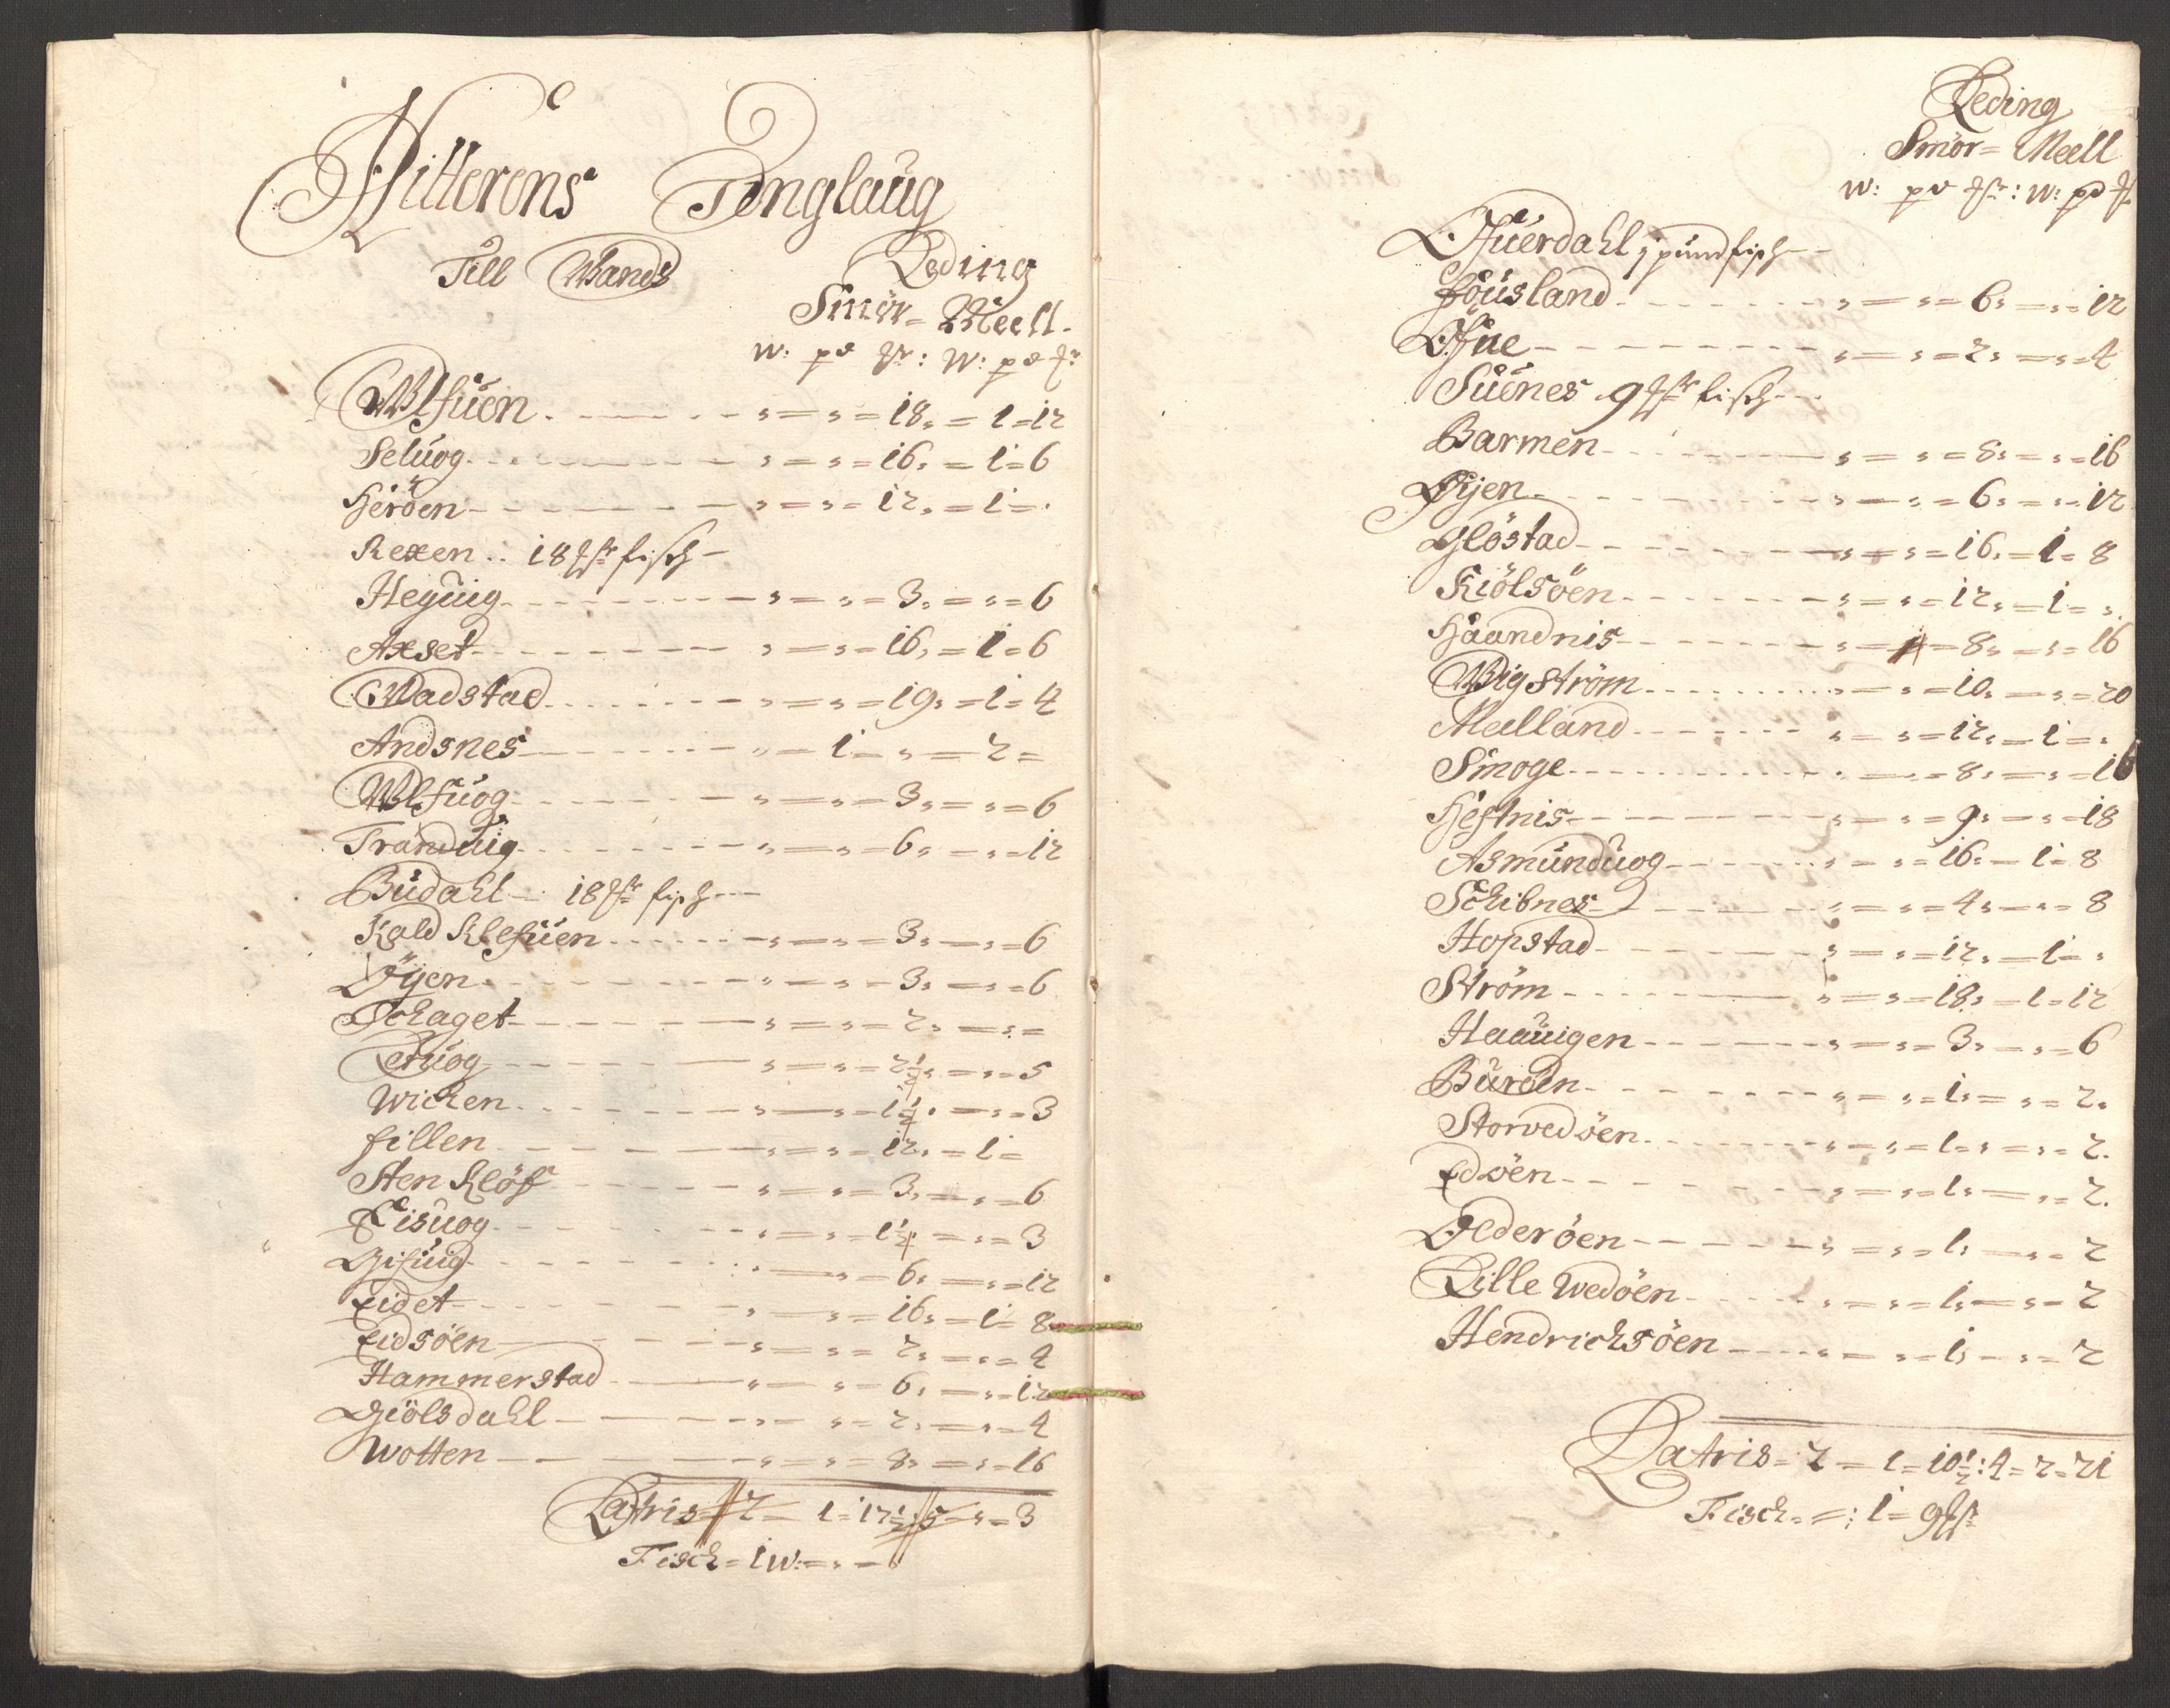 Hitterens Tinglaug
Till Wands
Leding
Smör = Meell.
w: pd : w: pd
Wlfuen . — , = , = 18, = 1 = 12
Seluog . — , = , = 16, = 1 = 6
Heröen — , = , = 12, = 1 = ,
Rexen .. 18 fisch —
Heguig — , = , = 3, = , = 6
Axset — , = , = 16, = 1 = 6
Wadstad — , = , = 19, = 1 = 4
Andsnes — , = 1 = , = 2 =
Wlfuog — , = , = 3, = , = 6
Tranduig — , = , = 6, = , = 12
Budahl — 18 fisch —
Kald Klefuen — , = , = 3, = , = 6
Öyen — , = , = 3, = , = 6
Schaget — , = , = 2, = , =
Letuog — , = , = 2½, = , = 5
Wichen — , = , = 1½, = , = 3
fillen — , = , = 12, = 1 =
Sten Klöf — , = , = 3, = , = 6
Eisuog — , = , = 1½, = , = 3
Gifuig — , = , = 6, = , = 12
Eidet — , = , = 16, = 1 = 8
Eidsöen — , = , = 2, = , = 4
Hammerstad — , = , = 6, = , = 12
Giölsdahl — , = , = 2, = , = 4
Wotten — , = , = 8, = , = 16
Latris = 2 = 1 = 17½ : 5 = , = 3
Fisch = 1 w: = , =
Leding
Smör = Meell
w: pd : w: pd
Ofuerdahl j pund fisch —
föusland — , = , = 6, = , = 12
Ofue — , = , = 2, = , = 4
Suenes 9 fisch —
Barmen — , = , = 8, = , = 16
Öyen — , = , = 6, = , = 12
Glöstad — , = , = 16, = 1 = 8
Kiölsöen — , = , = 12, = 1 = ,
Haandnis — , = 8, = , = 16
Wigström — , = , = 10, = , = 20
Meelland — , = , = 12, = 1 = ,
Smoge — , = 8, = , = 16
Hestnis — , = , = 9, = , = 18
Asmunduog — , = , = 16, = 1 = 8
Schibnes — , = , = 4, = , = 8
Hopstad — , = , = 12, = 1 = ,
Ström — , = , = 18, = 1 = 12
Haauigen — , = , = 3, = , = 6
Buröen — , = , = 1, = , = 2,
Storvedöen — , = , = 1, = , = 2.
Edöen — , = , = 1, = , = 2.
Olderöen — , = , = 1, = , = 2
Lille Wedöen — , = , = 1, = , = 2
Hendrichsöen — , = , = 1, = , = 2
Latris = 2 = 1 = 10½ : 4 = 2 = 21
Fisch = , 1 = 9